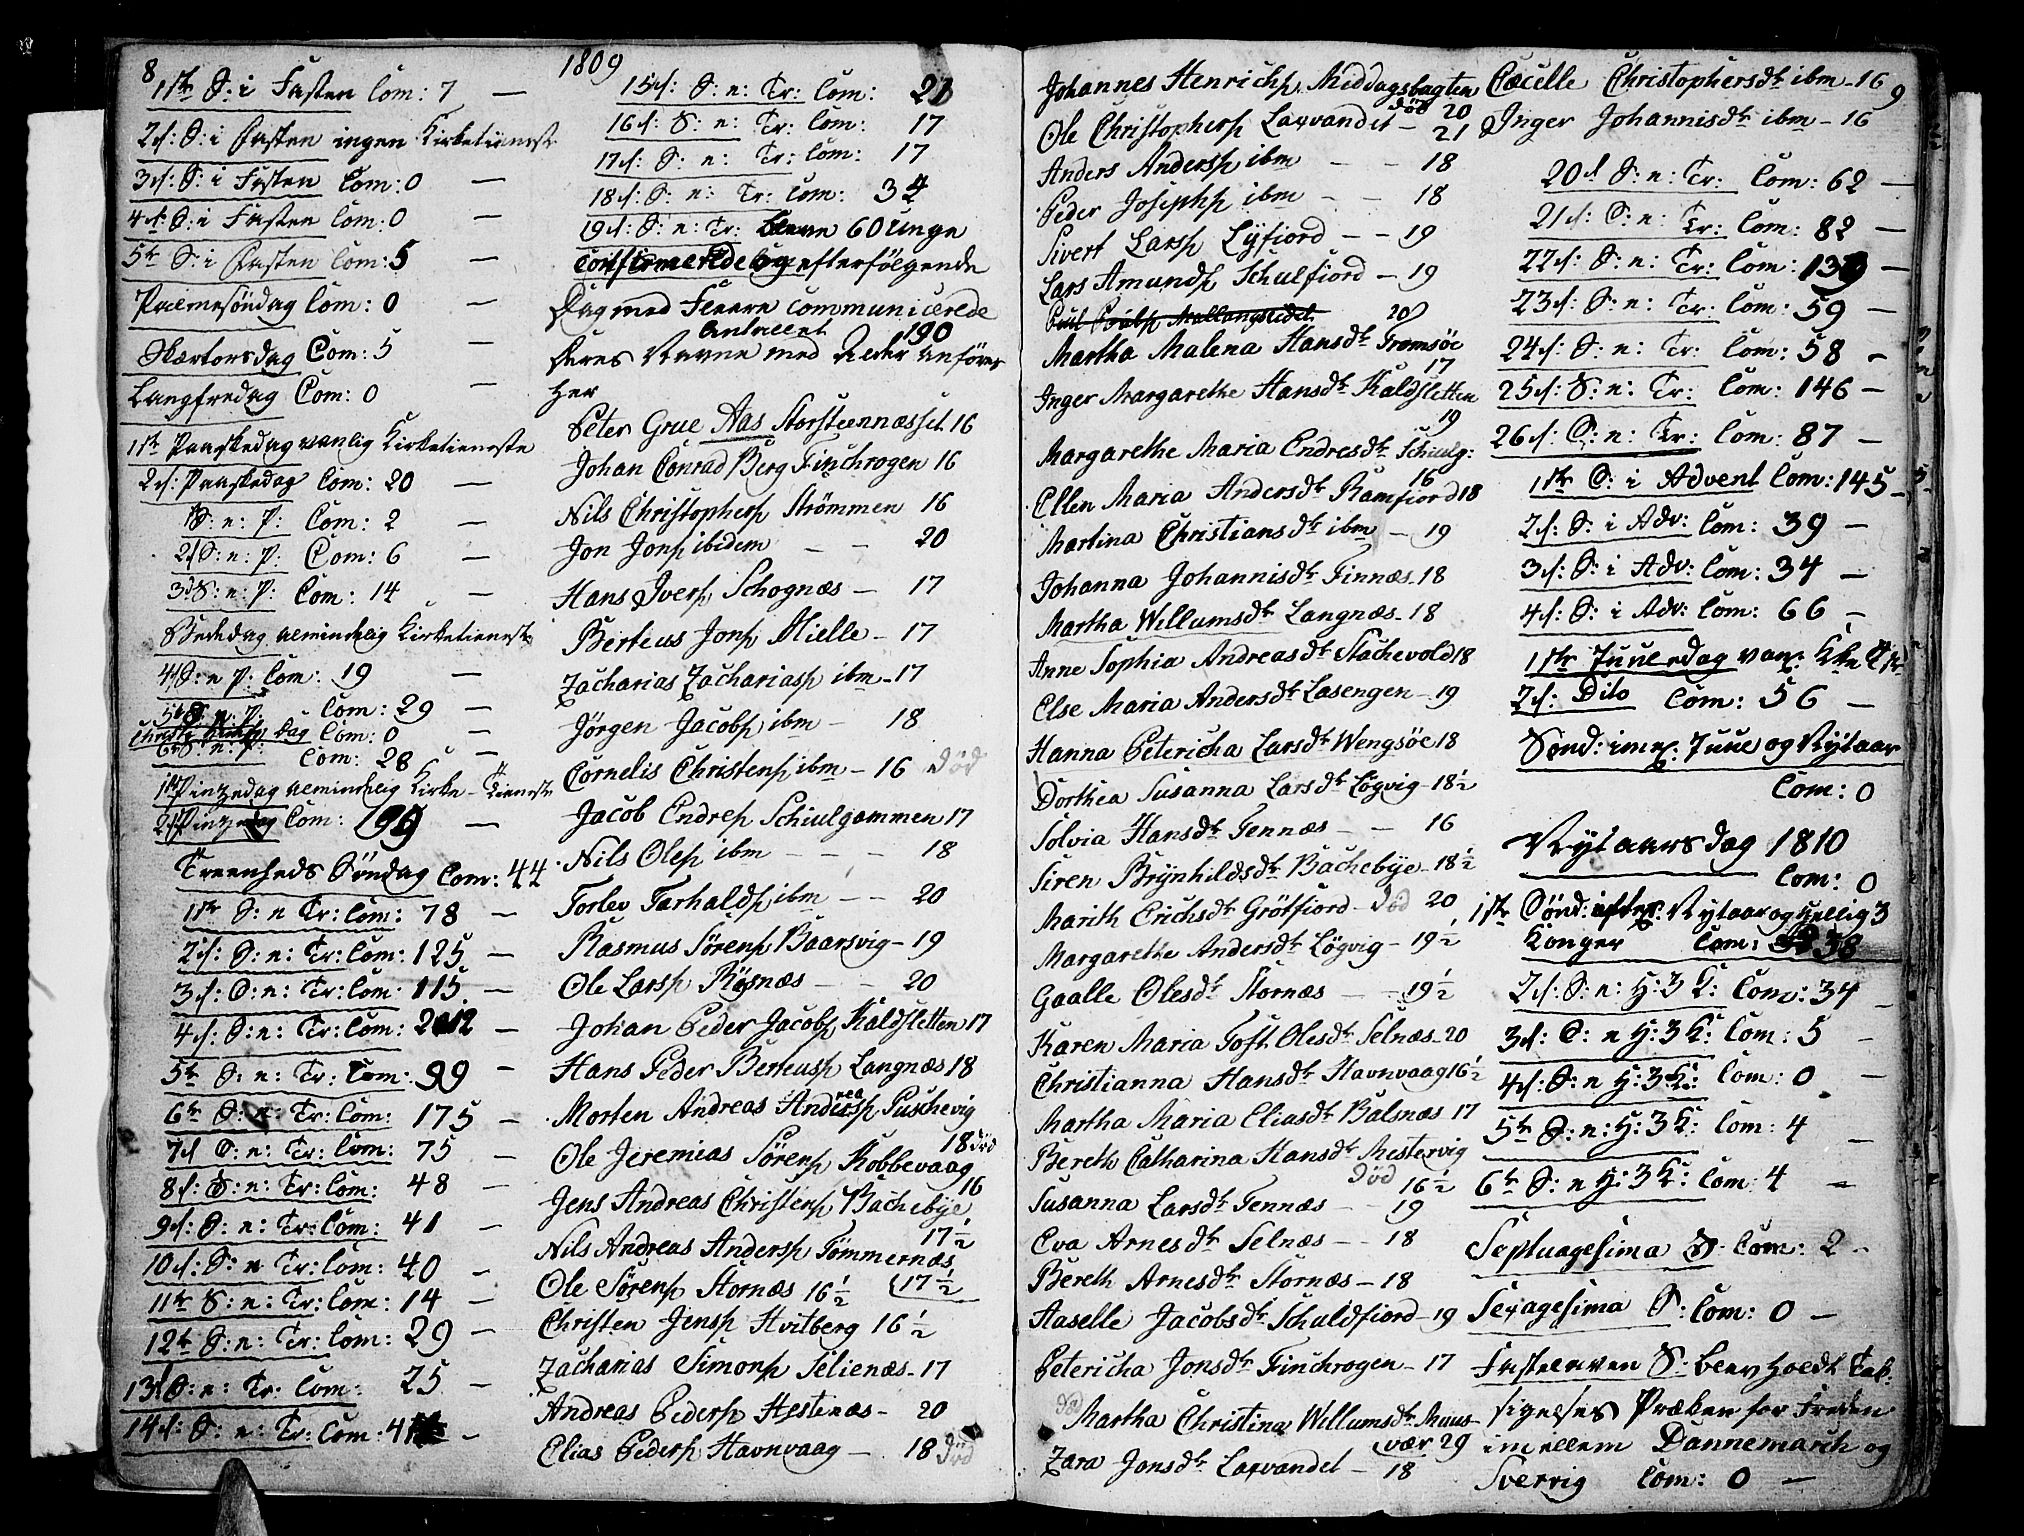 8
1809
1ste S: i Fasten Com: 7 —
2d: S: i Fasten ingen Kirketieneste
3d: S: i Fasten Com: 0 —
4d: S: i Fasten Com: 0 —
5te S: i Fasten Com: 5 —
Palmesöndag Com: 0 —
Skærtorsdag Com: 5 —
Langfredag Com: 0 —
1ste Paaskedag vanlig Kirketieneste
2d: Paaskedag Com: 20 —
1 S: e: P: Com: 2 —
2d S: e: P: Com: 6 —
3d S: e: P: Com: 14 —
Bededag almindelig Kirketieneste
4d S: e P: Com: 19 —
5te S: e: P: Com: 29 —
Christi Dag Com: 0 —
6te S: e: P: Com: 28 —
1ste Pinzedag almindelig Kirke-Tieneste
2d Pinzedag Com: 199 —
Treenheds Söndag Com: 44
1ste S: e Tr: Com: 78 —
2d: S: e: Tr: Com: 125 —
3d: S: e: Tr: Com: 115 —
4d: S: e: Tr: Com: 212 —
5te S: e: Tr: Com: 99 —
6te S: e: Tr: Com: 175 —
7d S: e: Tr: Com: 75 —
8d: S: e: Tr: Com: 48 —
9d: S: e: Tr: Com: 41 —
10d: S: e Tr: Com: 40 —
11te S: e: Tr: Com: 14 —
12te S: e: Tr: Com: 29 —
13d S: e: Tr: Com: 25 —
14d: S: e: Tr: Com: 4 —
15d: S: e: Tr: Com: 21
16d: S: e: Tr: Com: 17
17d: S: e: Tr: Com: 17
18d: S: e: Tr: Com: 34
19d: S: e: Tr: bleve 60 unge
Confirmerede og efterfölgende
Dag med Fleere communicerede
Antallet 190
Deres Navne med Alder anföres
her
Peter Grue Aas Storsteennæsset 16
Johan Conrad Berg Finchrogen 16
Nils Christophersp Strömmen 16
Jon Jonsp ibidem — — 20
Hans Iversp Schognæs — 17
Berteus Jonsp Mielle - 17
Zacharias Zachariasp ibm - 17
Jörgen Jacobsp ibm - 18
Cornelis Christensp ibm - 16 død
Jacob Endresp Schiulgammen 17
Nils Olesp ibm — — — 18
Torlev Tarhaldsp ibm — — 20
Rasmus Sörensp Baarsvig - 19
Ole Larsp Rysnæs — — 20
Johan Peder Jacobsp Kaldsletten 17
Hans Peder Berteusp Langnæs 18
Morten Andreas Andreasp Puschevig
18 død
Ole Jeremias Sörensp Kobbevaag
16
Jens Andreas Christensp Bachebÿe
17½
Nils Andreas Andersp Tömmernæs
17½
Ole Sörensp Stornæs 16½
Christen Jensp Hvitberg 16½
Zacharias Simonsp Selienæs - 17
Andreas Pedersp Hestenæs - 20
Elias Pedersp Havnvaag — 18 død
Johannes Henrichsp Middagsbugten
død 20
Ole Christophersp Laxvandet — 21
Anders Andersp ibm — — 18
Peder Josephsp ibm — — 18
Sivert Larsp Lÿfiord — — 19
Lars Amundsp Schulfiord — 19
Poul Poulsp Mallangseidet 20
Martha Malena Hansdtr Tromsöe
17
Inger Margarethe Hansdtr Kaldsletten
19
Margarethe Maria Endresdtr Schiulg:
16
Ellen Maria Andersdtr Ramfiord 18
Martina Christiansdtr ibm — 19
Johanna Johannisdtr Finnæs - 18
Martha Willumsdtr Langnæs - 18
Anne Sophia Andreasdtr Stachevold 18
Else Maria Andersdtr Lasengen - 19
Hanna Petericha Larsdtr Wengsöe 18
Dorthea Susanna Larsdtr Lögvig - 18½
Solvia Hansdtr Tennæs — — 16
Siren Brÿnhildsdtr Bachebÿe - 18½
Marith Erichsdtr Grötfiord - død 20
Margarethe Andersdtr Lögvig - 19½
Gaalle Olesdtr Stornæs — — 19½
Karen Maria Toft Olesdtr Selnæs - 20
Christianna Hansdtr Havnvaag 16½
Martha Maria Eliasdtr Balsnæs 17
Bereth Catharina Hansdtr Mestervig
død 16½
Susanna Larsdtr Tennæs — 19
Eva Arnesdtr Selnæs — 18
Bereth Arnesdtr Stornæs - 18
Aaselle Jacobsdtr Schuldfiord - 19
Petericha Jonsdtr Finchrogen - 17
død
Martha Christina Willumsdtr Muus-
vær 29
Zara Jonsdtr Laxvandet — 18
Cæcelle Christophersdtr ibm - 16
9
Inger Johannisdtr ibm - 16
20d S: e: Tr: Com: 62 —
21d: S: e: Tr: Com: 82 —
22d: S: e: Tr: Com: 139 —
23d: S: e: Tr: Com: 59 —
24d: S: e: Tr: Com: 58 —
25d: S: e: Tr: Com: 146 —
26d: S: e: Tr: Com: 87 —
1ste S: i Advent Com: 145 -
2d: S: i Adv: Com: 39 —
3d: S: i Adv: Com: 34 —
4d: S: i Adv: Com: 66 —
1ste Juuledag van: Kke Tje
2d: Dito Com: 56 —
Sönd: imel: Juul og Nÿtaar
Com: 0
Nÿtaarsdag 1810
Com: 0
1ste Sönd: efter Nÿtaar og hellig 3
Konger Com: 38
2d: S: e: H: 3 K: Com: 34 —
3d: S: e H: 3 K: Com: 5 —
4d: S: e H: 3 K: Com: 0 —
5te S: e: H: 3 K: Com: 4 —
6te S: e H: 3 K: Com: 4 —
Septuagesima S. Com: 2 -
Sexagesima S: Com: 0 —
Fastelaven S: blev holdt Tak-
sigelses Præken for Freden
imellem Dannemarch og
Sverrig Com: 0 —